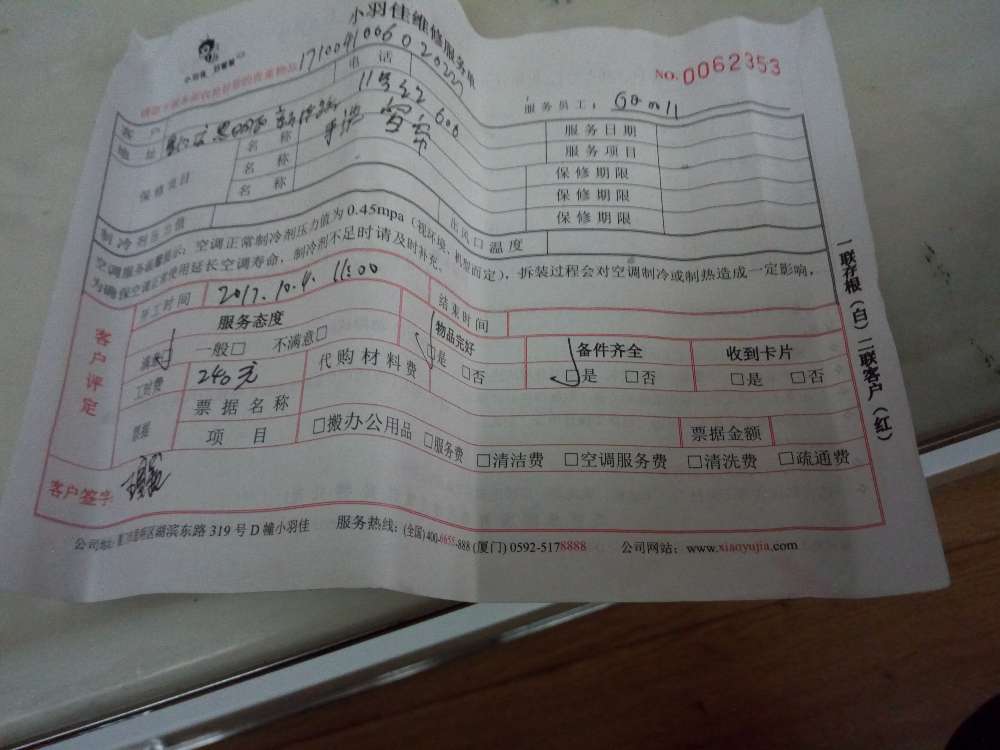 小羽佳维修服务单
小羽佳，好管家
NO.0062353
请您妥善保管好您的贵重物品
客户 电话 服务员工：
地址 11号之2 600 服务日期
保修类目 名称 服务项目
名称 保修期限
名称 保修期限
保修期限
制冷剂压力值 出风口温度
空调服务温馨提示：空调正常制冷剂压力值为0.45mpa（视环境、机型而定），拆装过程会对空调制冷或制热造成一定影响，
为确保空调正常使用延长空调寿命，制冷剂不足时请及时补充。
客户评定
开工时间 2017.10.4. 11:00 结束时间
服务态度 物品完好 备件齐全 收到卡片
满意 一般□ 不满意□ □是 □否 □是 □否 □是 □否
工时费 240元 代购材料费
票据 票据名称 票据金额
项目 □搬办公用品 □服务费 □清洁费 □空调服务费 □清洗费 □疏通费
客户签字
一联存根（白）二联客户（红）
湖滨东路319号D幢小羽佳 服务热线：(全国)400-6655-888 (厦门) 0592-5178888 公司网站：www.xiaoyujia.com